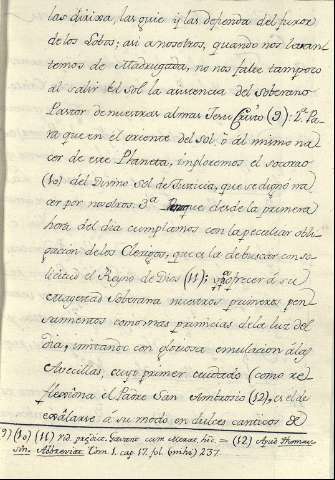 las dirixa, las guie y las defienda del furor
de los Lobos; asi a nosotros, quando nos levan
temos de Madrugada, no nos falte tampoco
al salir el sol la asistencia del soberano
Pastor de nuestras almas Jesu Cristo (9): 2ª Pa
ra que en el oriente del sol, ò al mismo na
cer de este Planeta, imploremos el socorro
(10) del Divino Sol de Justicia, que se dignó na
cer por nosotros: 3ª que desde la primera
hora del dia cumplamos con la peculiar obli
gacion de los Clerigos, que es la de buscar con so
licitud el Reyno de Dios (11); ofrecer á su
Magestad Soberana nuestros primeros pen
samientos como mas primicias de la luz del
dia, imitando con gloriosa emulacion á las
Avecillas, cuyo primer cuidado (como re
flexiona el Padre San Ambrosio (12), es el de
exâlarse á su modo en dulces canticos de
9) (10) (11) Gavant. cum Merat. hic. = (12) Apud Thomas
sin. Tom. 1. cap. 17. fol. (mihi) 237.